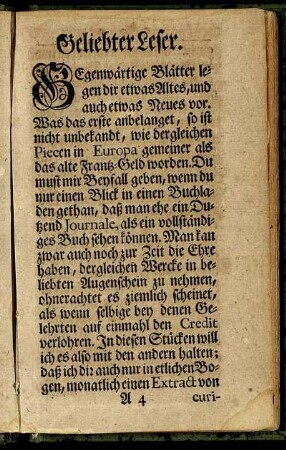 Geliebter Leser.
GEgenwärtige Blätter le-
gen dir etwas Altes, und
auch etwas Neues vor.
Was das erste anbelanget, so ist
nicht unbekandt, wie dergleichen
Piecen in Europa gemeiner als
das alte Frantz-Geld worden. Du
must mir Beyfall geben, wenn du
nur einen Blick in einen Buchla-
den gethan, daß man ehe ein Du-
tzend Journale, als ein vollständi-
ges Buch sehen können. Man kan
zwar auch noch zur Zeit die Ehre
haben, dergleichen Wercke in be-
liebten Augenschein zu nehmen,
ohnerachtet es ziemlich scheinet,
als wenn selbige bey denen Ge-
lehrten auf einmahl den Credit
verlohren. In diesen Stücken will
ich es also mit den andern halten;
daß ich dir auch nur in etlichen Bo-
gen, monatlich einen Extract von
A 4 curi-